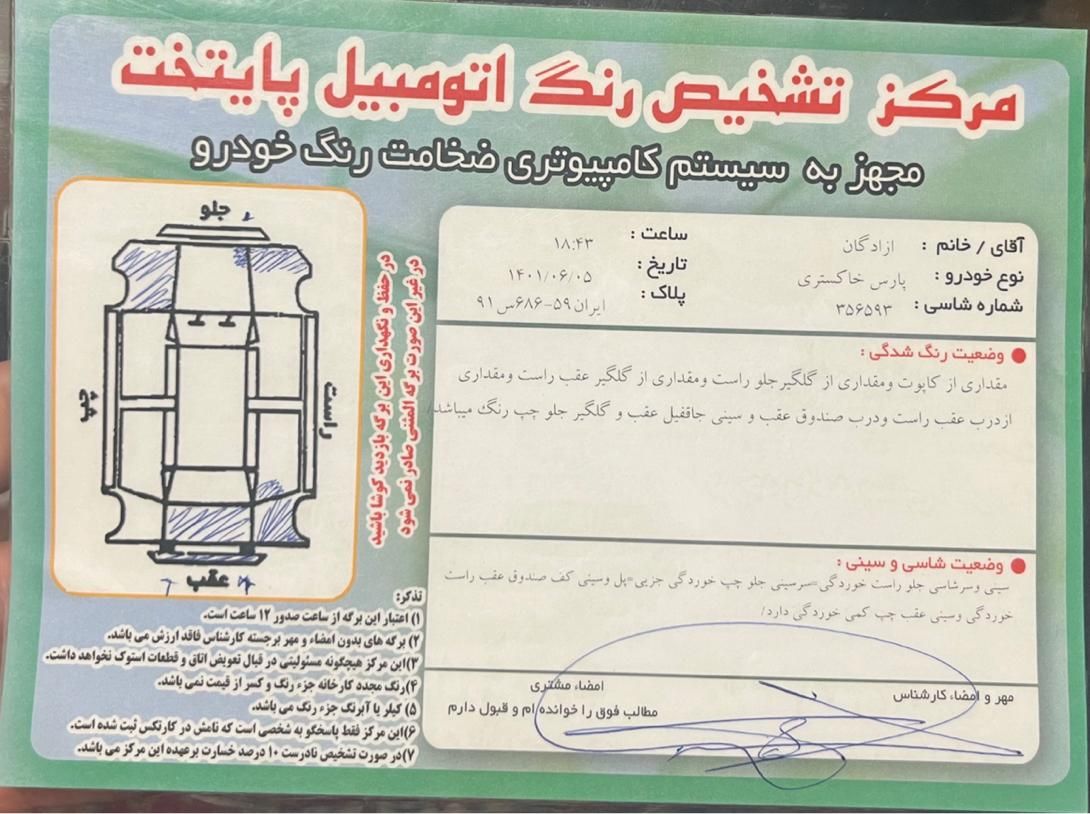 مرکز تشخیص رنگ اتومبیل پایتخت
مجهز به سیستم کامپیوتری ضخامت رنگ خودرو
آقای / خانم : ازادگان
ساعت : ۱۸:۴۳
نوع خودرو : پارس خاکستری
تاریخ : ۱۴۰۱/۰۶/۰۵
شماره شاسی : ۳۵۶۵۹۳
پلاک : ایران ۵۹-۶۸۶س۹۱
وضعیت رنگ شدگی :
مقداری از کاپوت ومقداری از گلگیرجلو راست ومقداری از گلگیر عقب راست ومقداری
ازدرب عقب راست ودرب صندوق عقب و سینی جاقفیل عقب و گلگیر جلو چپ رنگ میباشد/
وضعیت شاسی و سینی :
سینی وسرشاسی جلو راست خوردگی=سرسینی جلو چپ خوردگی جزیی=پل وسینی کف صندوق عقب راست
خوردگی وسینی عقب چپ کمی خوردگی دارد/
مهر و امضاء کارشناس
امضاء مشتری
مطالب فوق را خوانده ام و قبول دارم
جلو
چپ
راست
عقب
در حفظ و نگهداری این برگه بازدید کوشا باشید
در غیر این صورت برگه المثنی صادر نمی شود
تذکر:
۱) اعتبار این برگه از ساعت صدور ۱۲ ساعت است.
۲) برگه های بدون امضاء و مهر برجسته کارشناس فاقد ارزش می باشد.
۳)این مرکز هیچگونه مسئولیتی در قبال تعویض اتاق و قطعات استوک نخواهد داشت.
۴)رنگ مجدد کارخانه جزء رنگ و کسر از قیمت نمی باشد.
۵) کیلر یا آبرنگ جزء رنگ می باشد.
۶)این مرکز فقط پاسخگو به شخصی است که نامش در کارتکس ثبت شده است.
۷)در صورت تشخیص نادرست ۱۰ درصد خسارت برعهده این مرکز می باشد.